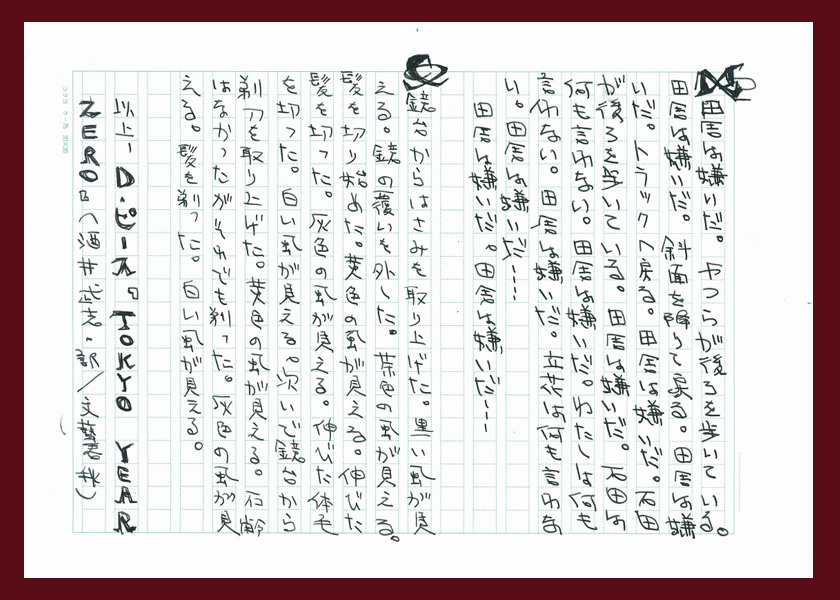 田舎は嫌いだ。やつらが後ろを歩いている。
田舎は嫌いだ。斜面を降りて戻る。田舎は嫌
いだ。トラックへ戻る。田舎は嫌いだ。石田
が後ろを歩いている。田舎は嫌いだ。石田は
何も言わない。田舎は嫌いだ。わたしは何も
言わない。田舎は嫌いだ。立花は何も言わな
い。田舎は嫌いだ----
田舎は嫌いだ。田舎は嫌いだ----
鏡台からはさみを取り上げた。黒い虱が見
える。鏡の覆いを外した。茶色の虱が見える。
髪を切り始めた。黄色の虱が見える。伸びた
髪を切った。灰色の虱が見える。伸びた体毛
を切った。白い虱が見える。次いで鏡台から
剃刀を取り上げた。黄色の虱が見える。石鹼
はなかったがそれでも剃った。灰色の虱が見
える。髪を剃った。白い虱が見える。
以上、D・ピース『TOKYO YEAR
ZERO』(酒井武志・訳/文藝春秋)
コクヨ ケー75 20×20